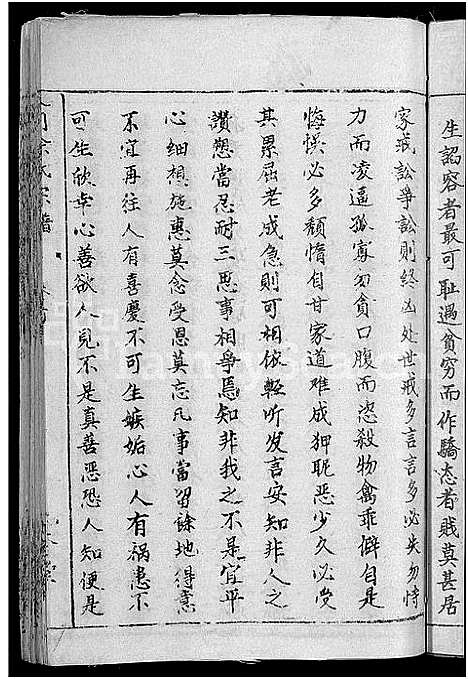 生諂容者最可耻遇貧穷而作驕态者贱莫甚居
家戒訟爭訟則终凶处世戒多言言多必失勿恃
力而凌逼孤寡勿貪口腹而恣殺物禽乖僻自是
悔悮必多颓惰自甘家道难成狎昵恶少久必受
其累屈老成急則可相依輕听发言安知非人之
讚愬當忍耐三思事相爭焉知非我之不是宜平
心细想施惠莫念受恩莫忘凡事當留餘地得意
不宜再往人有喜慶不可生嫉妬心人有祸患不
可生欣幸心善欲人見不是真善恶恐人知便是
余氏宗譜